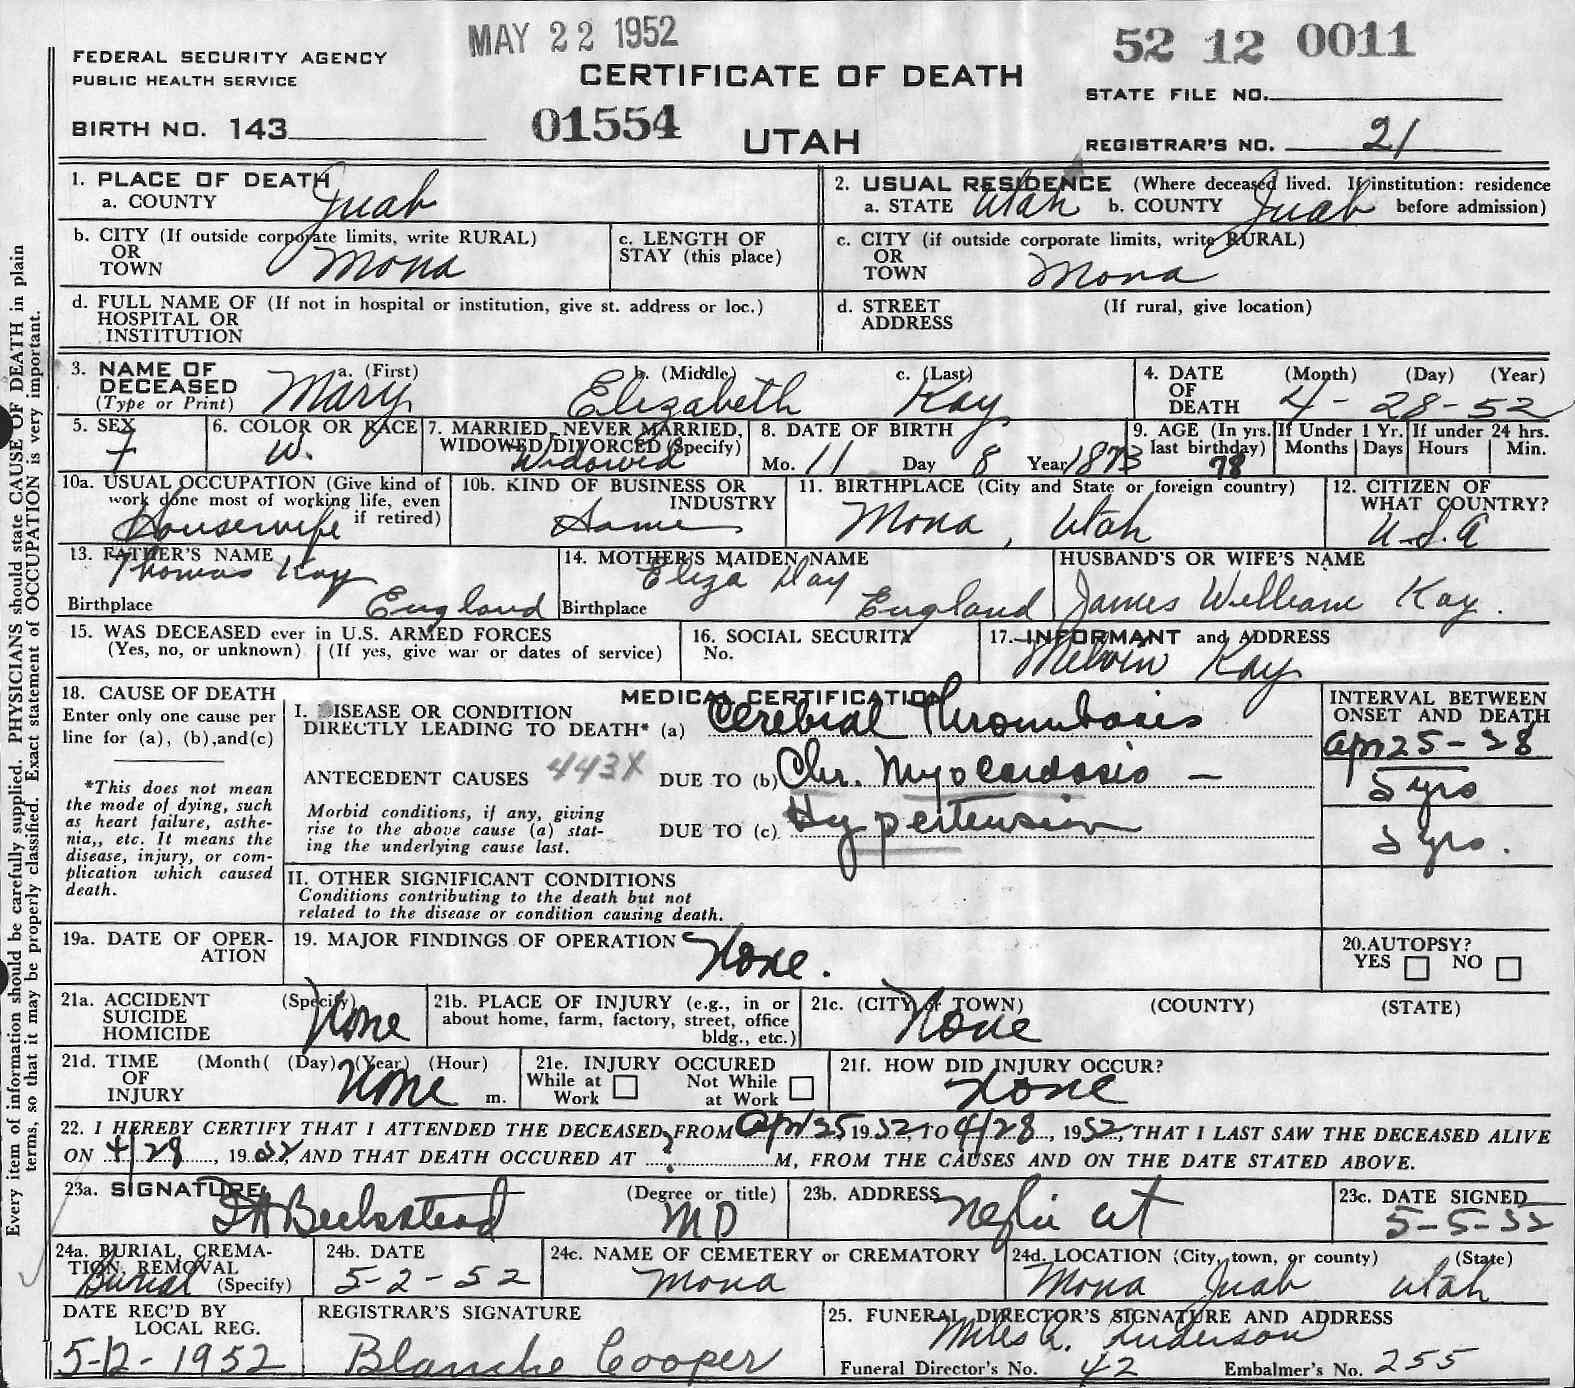 MAY 22 1952
52 12 0011
FEDERAL SECURITY AGENCY
PUBLIC HEALTH SERVICE
CERTIFICATE OF DEATH
STATE FILE NO.
BIRTH NO. 143
01554
UTAH
REGISTRAR'S NO. 21
1. PLACE OF DEATH
a. COUNTY Juab
2. USUAL RESIDENCE (Where deceased lived. If institution: residence before admission)
a. STATE Utah b. COUNTY Juab
b. CITY (If outside corporate limits, write RURAL)
OR
TOWN Mona
c. LENGTH OF
STAY (this place)
c. CITY (if outside corporate limits, write RURAL)
OR
TOWN Mona
d. FULL NAME OF (If not in hospital or institution, give st. address or loc.)
HOSPITAL OR
INSTITUTION
d. STREET (If rural, give location)
ADDRESS
3. NAME OF DECEASED
(Type or Print)
a. (First) Mary
b. (Middle) Elizabeth
c. (Last) Kay
4. DATE OF DEATH
(Month) (Day) (Year)
4-28-52
5. SEX
F
6. COLOR OR RACE
W.
7. MARRIED, NEVER MARRIED,
WIDOWED, DIVORCED (Specify)
Widowed
8. DATE OF BIRTH
Mo. 11 Day 8 Year 1873
9. AGE (In yrs. last birthday)
78
If Under 1 Yr.
Months Days
If under 24 hrs.
Hours Min.
10a. USUAL OCCUPATION (Give kind of
work done most of working life, even
if retired)
Housewife
10b. KIND OF BUSINESS OR
INDUSTRY
Same
11. BIRTHPLACE (City and State or foreign country)
Mona, Utah
12. CITIZEN OF
WHAT COUNTRY?
U.S.A
13. FATHER'S NAME
Thomas Kay
Birthplace England
14. MOTHER'S MAIDEN NAME
Eliza Day
Birthplace England
HUSBAND'S OR WIFE'S NAME
James William Kay.
15. WAS DECEASED ever in U.S. ARMED FORCES
(Yes, no, or unknown) (If yes, give war or dates of service)
16. SOCIAL SECURITY
No.
17. INFORMANT and ADDRESS
Melvin Kay
18. CAUSE OF DEATH
Enter only one cause per
line for (a), (b), and (c)
*This does not mean
the mode of dying, such
as heart failure, asthe-
nia,, etc. It means the
disease, injury, or com-
plication which caused
death.
MEDICAL CERTIFICATION
I. DISEASE OR CONDITION
DIRECTLY LEADING TO DEATH* (a) Cerebral Thrombosis
ANTECEDENT CAUSES 443X DUE TO (b) Chr. Myocardosis -
Morbid conditions, if any, giving
rise to the above cause (a) stat-
ing the underlying cause last.
DUE TO (c) Hypertension
INTERVAL BETWEEN
ONSET AND DEATH
Apr 25-28
5 yrs
5 yrs.
II. OTHER SIGNIFICANT CONDITIONS
Conditions contributing to the death but not
related to the disease or condition causing death.
19a. DATE OF OPER-
ATION
19. MAJOR FINDINGS OF OPERATION
None.
20. AUTOPSY?
YES NO
21a. ACCIDENT
SUICIDE
HOMICIDE
(Specify) None
21b. PLACE OF INJURY (e.g., in or
about home, farm, factory, street, office
bldg., etc.)
21c. (CITY or TOWN) (COUNTY) (STATE)
None
21d. TIME (Month( (Day) (Year) (Hour)
OF
INJURY None m.
21e. INJURY OCCURED
While at Work Not While at Work
21f. HOW DID INJURY OCCUR?
None
22. I HEREBY CERTIFY THAT I ATTENDED THE DECEASED FROM Apr 25 1952, TO 4/28, 1952, THAT I LAST SAW THE DECEASED ALIVE
ON 4/28, 1952, AND THAT DEATH OCCURED AT ? M, FROM THE CAUSES AND ON THE DATE STATED ABOVE.
23a. SIGNATURE Beckstead
(Degree or title) MD
23b. ADDRESS Nephi Ut
23c. DATE SIGNED
5-5-52
24a. BURIAL, CREMA-
TION, REMOVAL
(Specify) Burial
24b. DATE
5-2-52
24c. NAME OF CEMETERY or CREMATORY
Mona
24d. LOCATION (City, town, or county) (State)
Mona Juab Utah
DATE REC'D BY
LOCAL REG.
5-12-1952
REGISTRAR'S SIGNATURE
Blanche Cooper
25. FUNERAL DIRECTOR'S SIGNATURE AND ADDRESS
Miles L. Anderson
Funeral Director's No. 42 Embalmer's No. 255
Every item of information should be carefully supplied. PHYSICIANS should state CAUSE OF DEATH in plain
terms, so that it may be properly classified. Exact statement of OCCUPATION is very important.